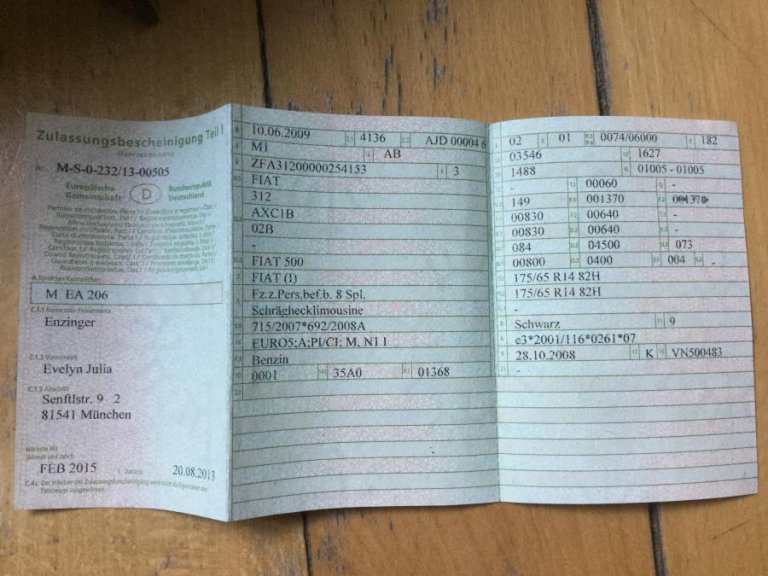 Zulassungsbescheinigung Teil I
(Fahrzeugschein)
Nr. M-S-0-232/13-00505
Europäische Gemeinschaft D Bundesrepublik Deutschland
A Amtliches Kennzeichen
M EA 206
C.1.1 Name oder Firmenname
Enzinger
C.1.2 Vorname(n)
Evelyn Julia
C.1.3 Anschrift
Senftlstr. 9 2
81541 München
Nächste HU
(Monat und Jahr)
FEB 2015 I Datum: 20.08.2013
C.4c Der Inhaber der Zulassungsbescheinigung wird nicht als Eigentümer des Fahrzeugs ausgewiesen.
B 10.06.2009 2.1 4136 AJD 00004 6
M1 AB
ZFA31200000254153 3 3
FIAT
312
AXC1B
02B
-
FIAT 500
FIAT (I)
Fz.z.Pers.bef.b. 8 Spl.
Schräghecklimousine
715/2007*692/2008A
EURO5;A;PI/CI; M, N1 I
Benzin
0001 35A0 01368
02 01 0074/06000 182
03546 1627
1488 01005 - 01005
- 00060 -
149 001370
00830 00640 -
00830 00640 -
084 04500 073
00800 0400 004 -
175/65 R14 82H
175/65 R14 82H
-
Schwarz 9
e3*2001/116*0261*07
28.10.2008 K VN500483
-